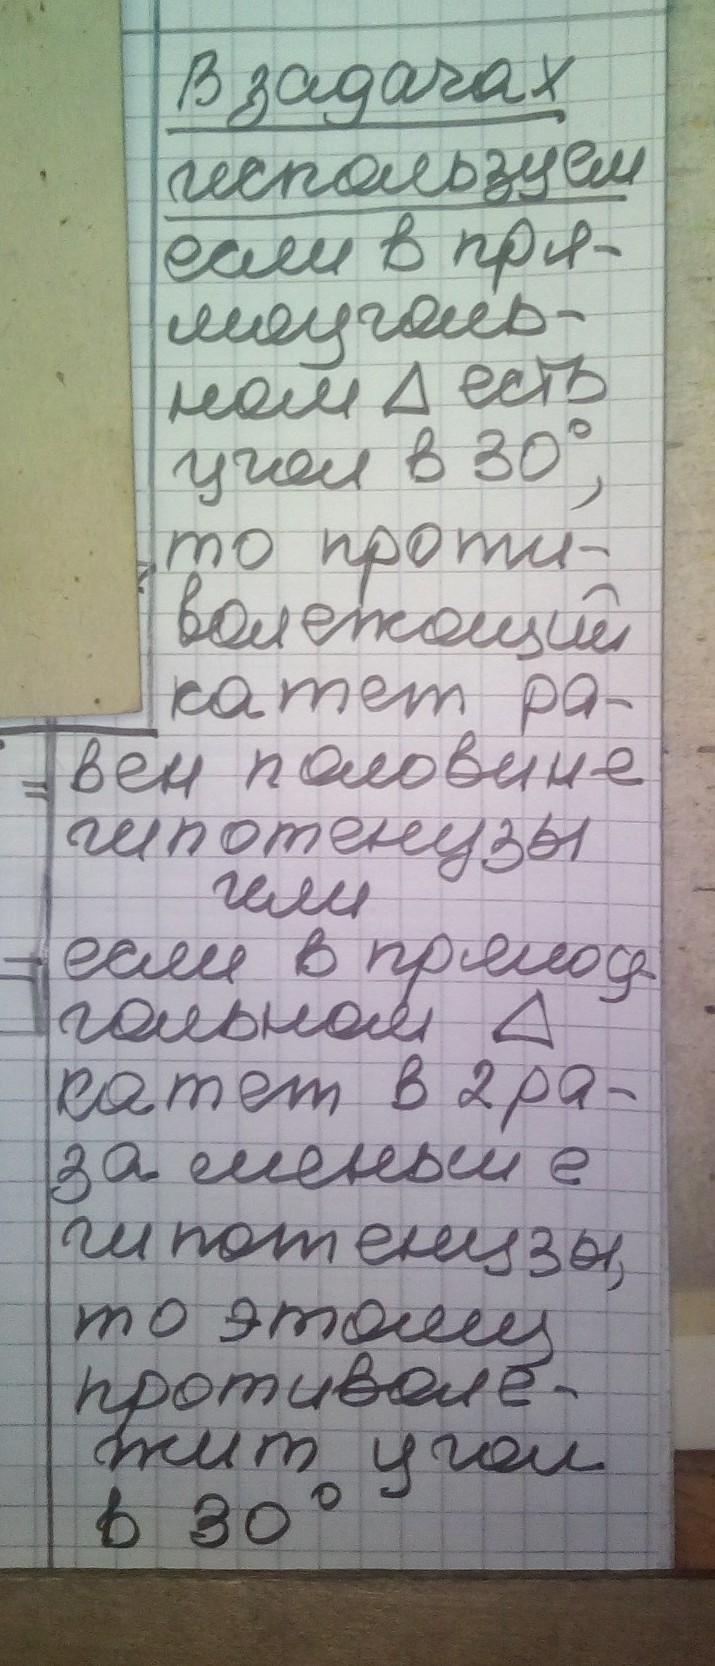 В задачах
используем
если в пря-
моуголь-
ном Δ есть
угол в 30°,
то проти-
волежащий
катет ра-
вен половине
гипотенузы
или
если в прямоу-
гольном Δ
катет в 2 ра-
за меньше
гипотенузы,
то этому
противоле-
жит угол
в 30°